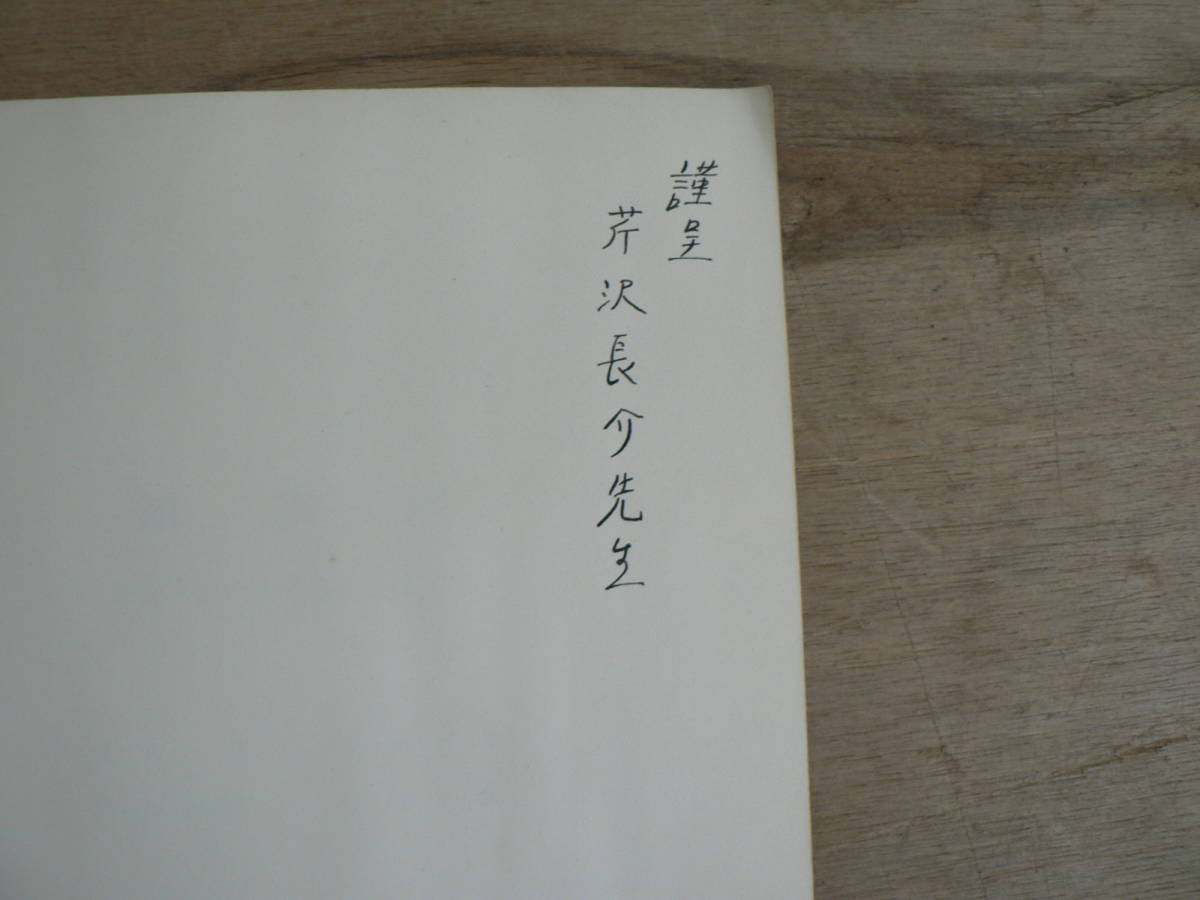 謹呈
芹沢長介先生